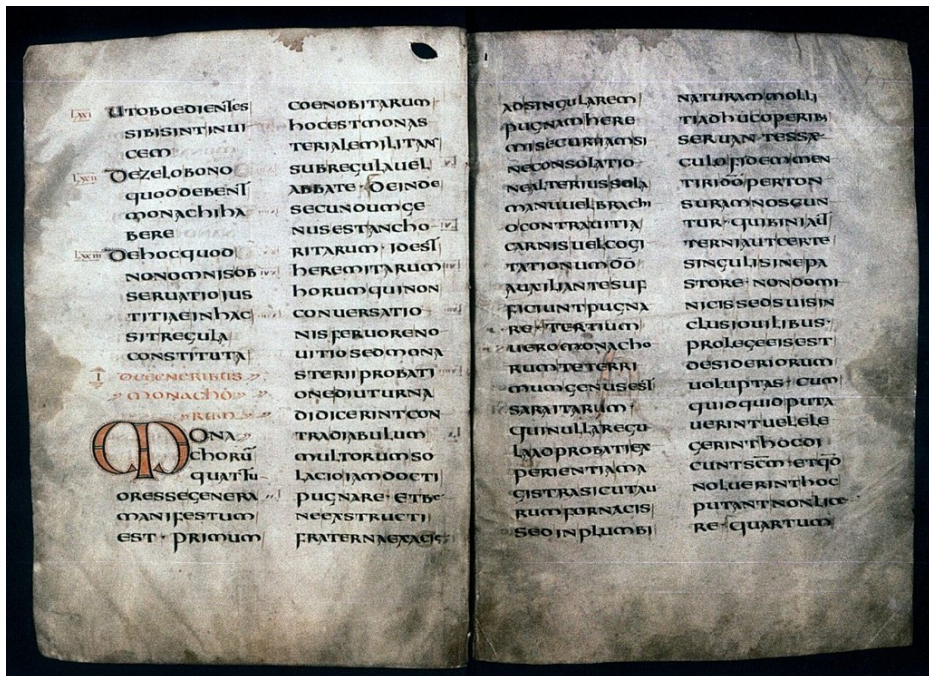 LXVI UTOBOEDIENTES
SIBI SINT INVI
CEM
LXVII DE ZELO BONO
QUOD DEBENT
MONACHI HA
BERE
LXXIII DE HOC QUOD
NON OMNIS OB
SERUATIO IUS
TITIAE IN HAC
SIT REGULA
CONSTITUTA
I DE GENERIBUS
MONACHO
RUM
MONA
CHORŪ
QUATTU
ORESSE GENERA
MANIFESTUM
EST · PRIMUM
COENOBITARUM
HOC EST MONAS
TERIALE MILITAN
SUB REGULA UEL
ABBATE · DEINDE
SECUNDUM GE
NUS EST ANCHO
RITARUM · ID EST
HEREMITARUM
HORUM QUI NON
CONUERSATIO
NIS FERUORE NO
UITIO SED MONA
STERII PROBATI
ONE DIUTURNA
DIDICERINT CON
TRA DIABULUM
MULTORUM SO
LACIO IAM DOCTI
PUGNARE · ET BE
NE EXSTRUCTI
FRATERNA EX ACIE
AD SINGULAREM
PUGNAM HERE
MI SECURI IAM SI
NE CONSOLATIO
NE ALTERIUS SOLA
MANU UEL BRACHI
O CONTRA UITIA
CARNIS UEL COGI
TATIONUM D̄Ō
AUXILIANTE SUF
FICIUNT PUGNA
RE · TERTIUM
UERO MONACHO
RUM TETERRI
MUM GENUS EST
SARAITARUM
QUI NULLA REGU
LA ADPROBATI EX
PERIENTIA MA
GISTRA SICUT AU
RUM FORNACIS
SED IN PLUMBI
NATURA MOLLI
TI ADHUC OPERIB
SERUAN TES SAE
CULO FIDEM MEN
TIRI D̄Ō PER TON
SURAM NOSCUN
TUR · QUI BINI AUT
TERNI AUT CERTE
SINGULI SINE PA
STORE · NON DOMI
NICIS SED SUIS IN
CLUSI OUILIBUS ·
PRO LEGE EIS EST
DESIDERIORUM
UOLUPTAS · CUM
QUIDQUID PUTA
UERINT UEL ELE
GERINT HOC DI
CUNT SC̄M · ET QD̄
NOLUERINT HOC
PUTANT NON LICE
RE · QUARTUM